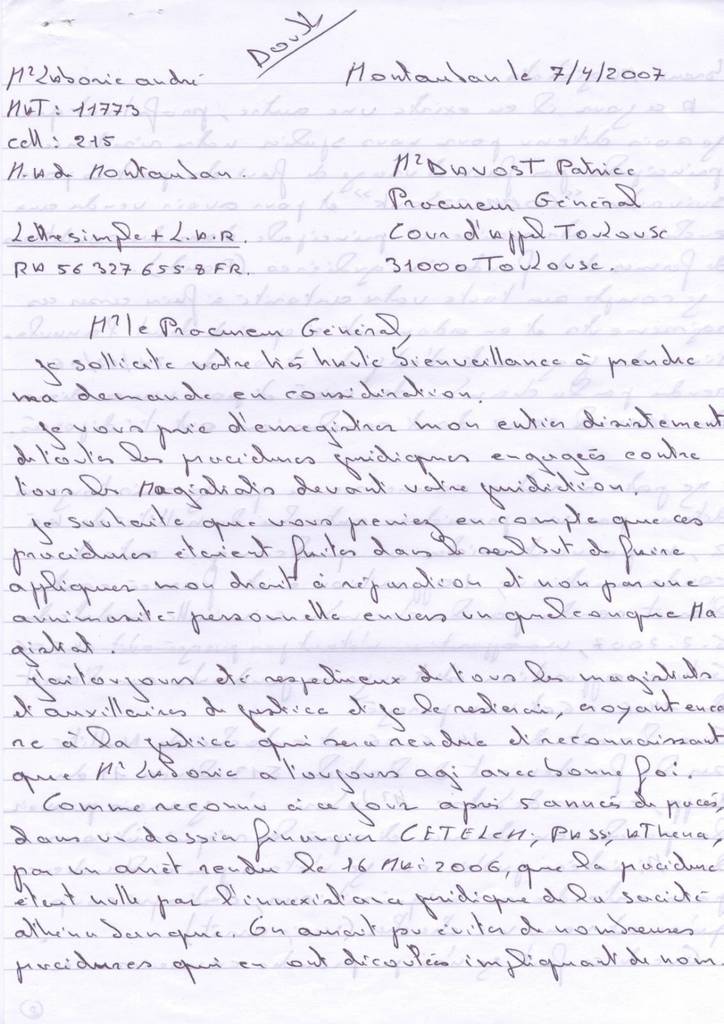 Doubl
Mr Laborie andré Montauban le 7/4/2007
NuT : 11773
cell : 215
M.A de Montauban. Mr DAVOST Patrice
Procureur Général
Lettre simple + L.A.R. Cour d'Appel Toulouse
RA 56 327 655 8 FR. 31000 Toulouse.
Mr le Procureur Général,
Je sollicite votre très haute bienveillance à prendre
ma demande en considération.
Je vous prie d'enregistrer mon entier désistement
de toutes les procédures juridiques engagées contre
tous les Magistrats devant votre juridiction.
Je souhaite que vous preniez en compte que ces
procédures étaient faites dans le seul but de faire
appliquer mon droit à réparation et non par une
animosité personnelle envers un quelconque Ma
gistrat.
J'ai toujours été respectueux de tous les magistrats
et auxillaires de justice et je le resterai, croyant enco
re à la justice qui sera rendue et reconnaissant
que Mr Laborie a toujours agi avec bonne foi.
Comme reconnu à ce jour après 5 années de procés,
dans un dossier financier CETELEM, PASS, AThena,
par un arrêt rendu le 16 Mai 2006, que la procédure
étant nulle par l'innexistance juridique de la société
athéna banque. On aurait pu éviter de nombreuses
procédures qui en ont découlées impliquant de nom